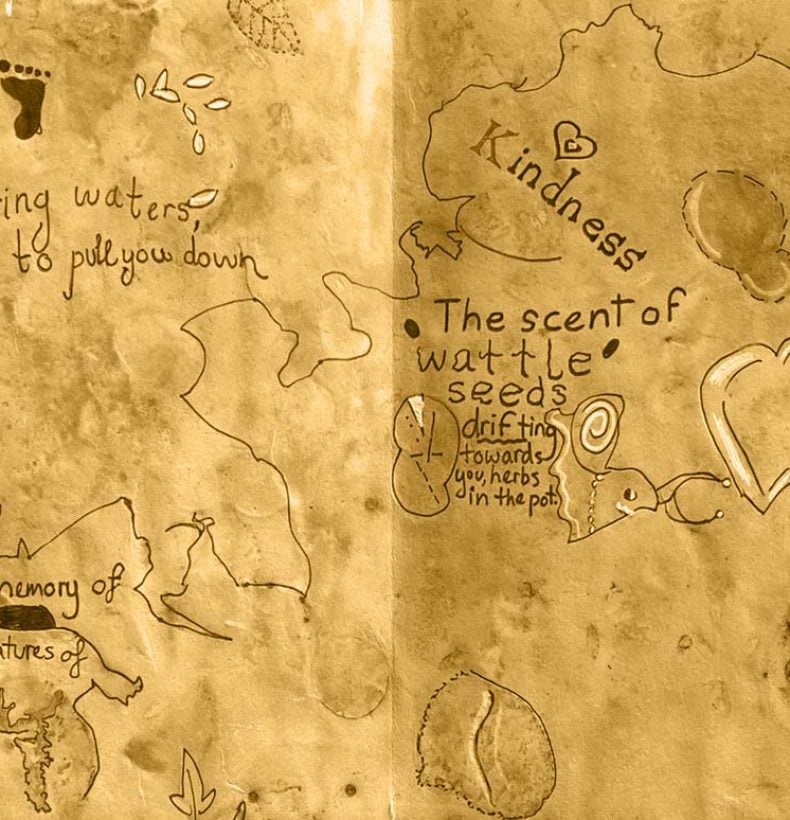 waters,
to pull you down
of
of
Kindness
The scent of
wattle
seeds
drifting
towards
you, herbs
in the pot.